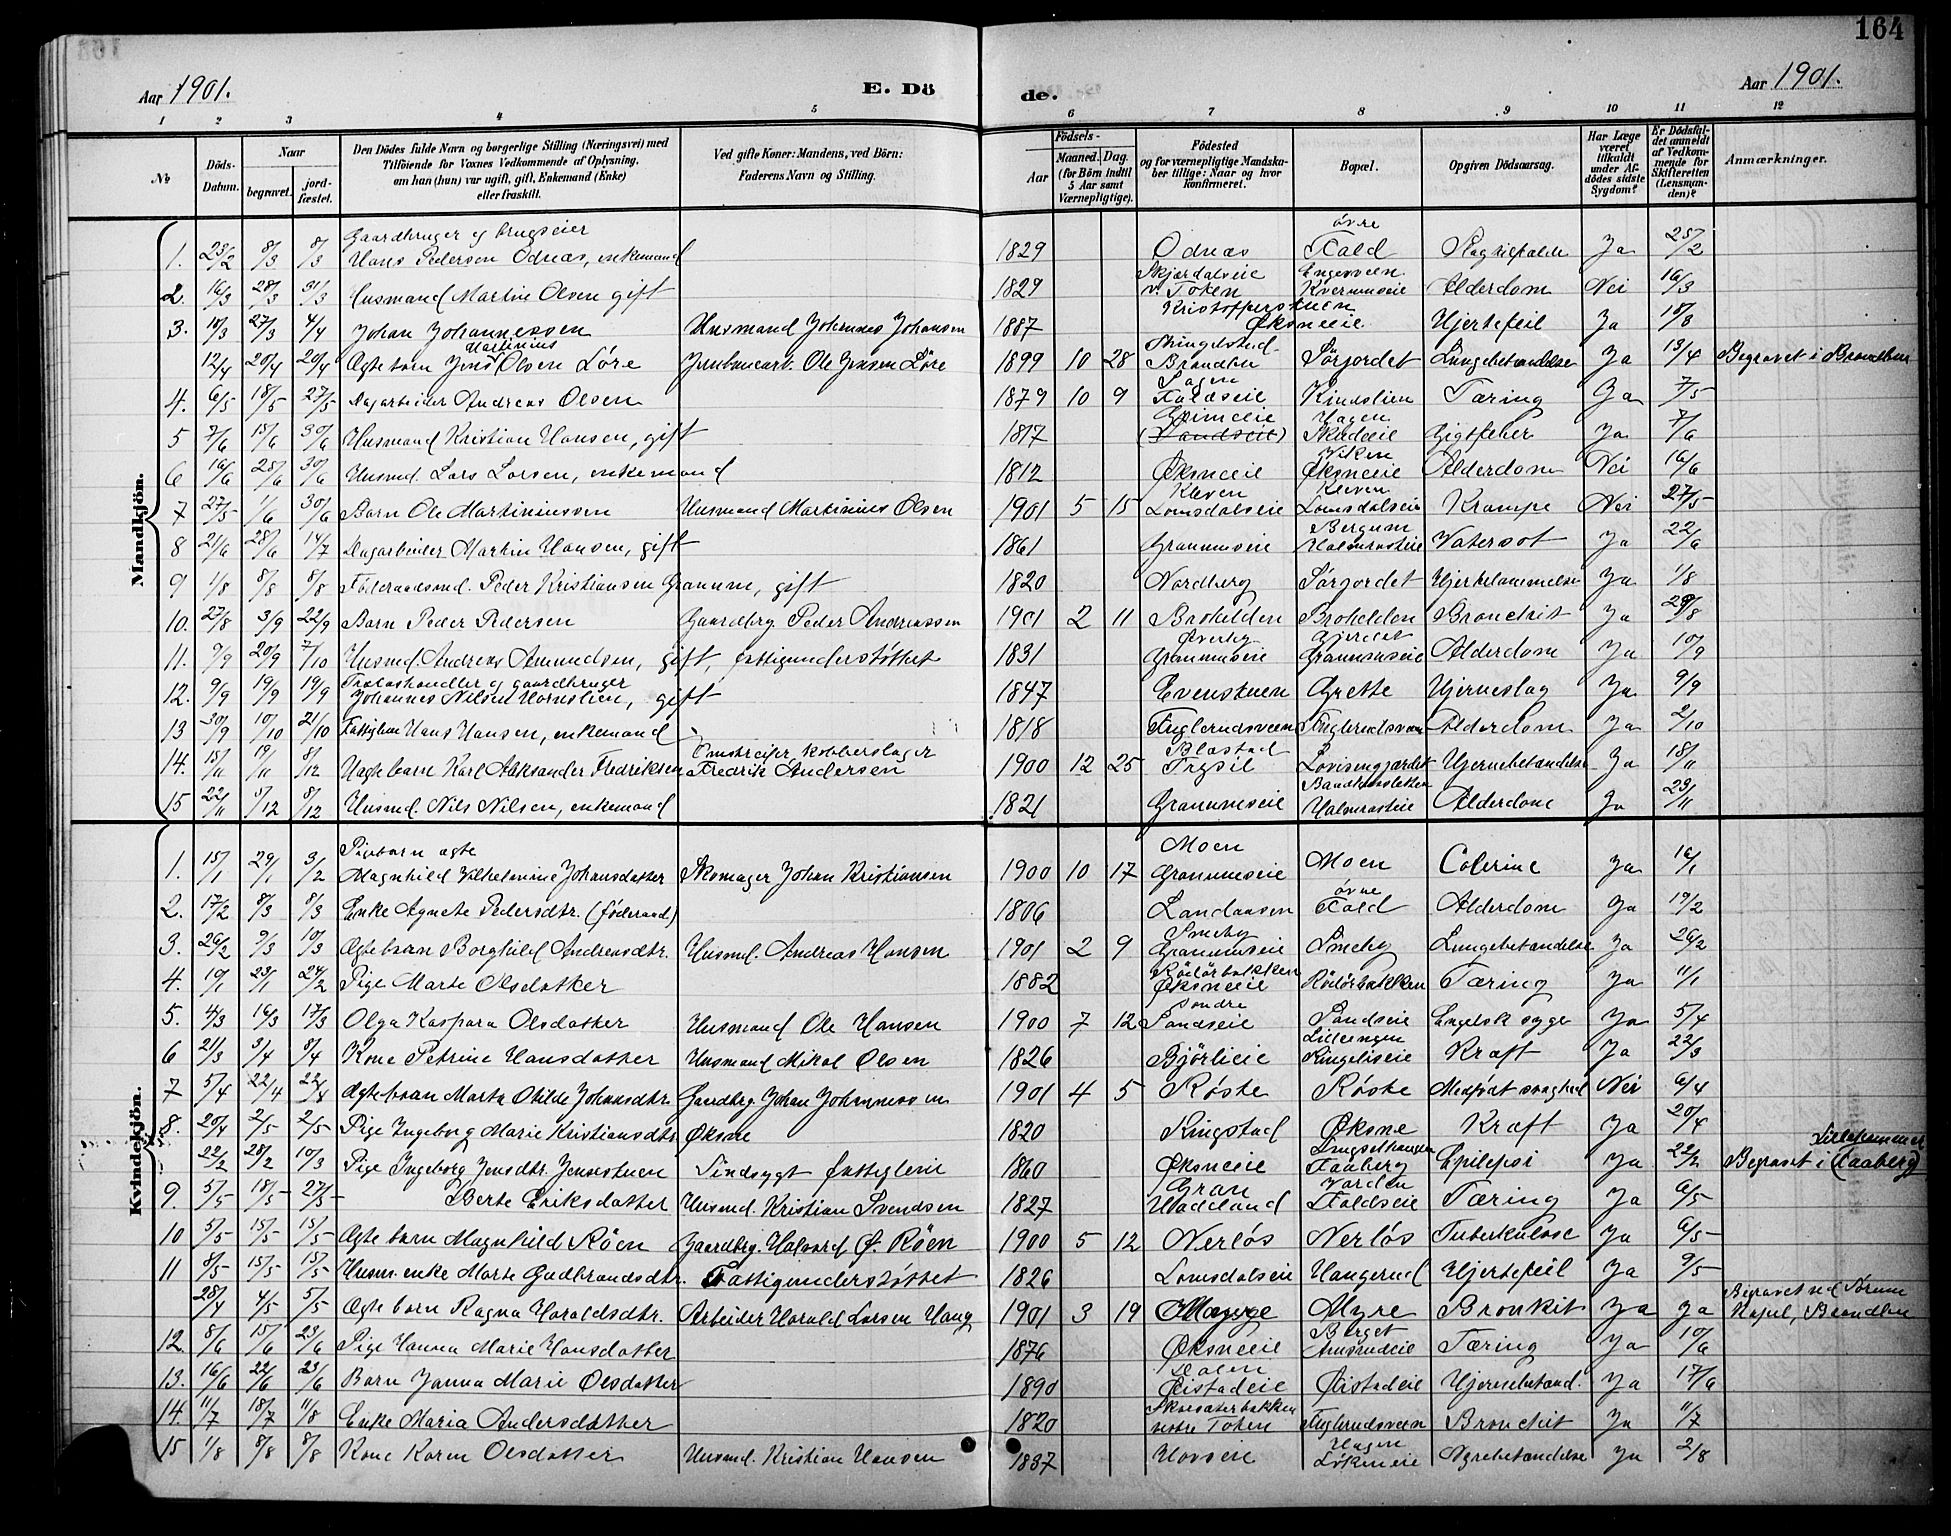 164
Aar 1901.
E. Dö
de.
Aar 1901.
1 2 3 4 5 6 7 8 9 10 11 12
№
Döds-Datum.
Naar
begravet.
jord-fæstet.
Den Dödes fulde Navn og borgerlige Stilling (Næringsvei) med Tilföiende for Voxnes Vedkommende af Oplysning, om han (hun) var ugift, gift, Enkemand (Enke) eller fraskilt.
Ved gifte Koner: Mandens, ved Börn: Faderens Navn og Stilling.
Aar
Födsels-
Maaned. Dag.
(for Börn indtil 5 Aar samt Værnepligtige).
Födested og for værnepligtige Mandskaber tillige: Naar og hvor konfirmeret.
Bopæl.
Opgiven Dödsaarsag.
Har Læge været tilkaldt under Afdödes sidste Sygdom?
Er Dödsfaldet anmeldt af Vedkommende for Skifteretten (Lensmanden)?
Anmærkninger.
Mandkjön.
Gaardbruger og brugseier øvre
1. 23/2 8/3 8/3 Hans Pedersen Odnæs, enkemand 1829 Odnæs Fald Slagtilfælde Ja 25/2
Skjærdalseie
2. 16/3 28/3 31/3 Husmand Martin Olsen gift 1829 v. Token Kvernumseie Alderdom Nei 16/3
Kristofferstuen
3. 10/3 27/3 4/4 Johan Johannessen Husmand Johannes Johansen 1887 Øksneeie Hjertefeil Ja
Martinius
12/4 20/4 20/4 Ægte barn Jens Olsen Löre Ole Jensen Löre 1899 10 28 Brandbu Sörjordet Lungebetændelse Ja 13/4 Begravet i Brandbu
4. 6/5 18/5 27/5 Dagarbeider Andreas Olsen 1879 10 9 Faldseie Kindslien Tæring Ja 7/5
Hagen
5 7/6 15/6 30/6 Husmand Kristian Hansen, gift 1817 (Landseie) Gigtfeber Ja 7/6
Viken
6 16/6 28/6 30/6 Husmd. Lars Larsen, enkemand 1812 Øksneeie Øksneeie Alderdom Nei 16/6
Kleven Kleven
7 27/5 1/6 30/6 Barn Ole Martiniussen Husmand Martinius Olsen 1901 5 15 Lomsdalseie Lomsdalseie Krampe Nei 27/5
8 21/6 28/6 14/7 Dagarbeider Martin Hansen, gift 1861 Granumseie Vatersot Ja 22/6
9 1/8 8/8 8/8 Föderaadsmd. Peder Kristiansen Granum, gift 1820 Nordberg Sörjordet Hjertelammelse Ja 1/8
10. 27/8 3/9 22/9 Barn Peder Pedersen Gaardbrg. Peder Andreassen 1901 2 11 Broholden Broholden Bronchit Ja
Øverby Gjerdet
11. 9/9 20/9 7/10 Husmd. Andreas Amundsen, gift, fattigunderstöttet 1831 Granumseie Granumseie Alderdom Ja 10/9
Trælasthandler og gaardbruger
12. 9/9 19/9 19/9 Johannes Nilsen Hornslien, gift 1847 Evenstuen Grette Hjerneslag Ja 9/9
13 30/9 10/10 21/10 Fattiglem Hans Hansen, enkemand 1818 Fuglerudsveen Fuglerudsveen Alderdom Ja 2/10
Omstreifer, kobberslager Blæstad
14. 15/11 19/11 8/12 Uægte barn Karl Aleksander Fredriksen Fredrik Andersen 1900 12 25 Trysil Hjernebetændelse Ja 18/11
15 22/11 5/12 8/12 Husmd. Nils Nilsen, enkemand 1821 Granumseie Alderdom Ja 23/11
Kvindekjön.
Pigebarn ægte Moen
1. 15/1 29/1 3/2 Magnhild Vilhelmine Johansdatter Skomager Johan Kristiansen 1900 10 17 Granumseie Moen Colerine Ja 16/1
øvre
2. 17/2 8/3 8/3 Enke Agnete Pedersdtr. (föderaad) 1806 Landaasen Fald Alderdom Ja 19/2
Smeby
3. 26/2 9/3 10/3 Ægte barn Borghild Andreasdtr. Husmd. Andreas Hansen 1901 2 9 Granumseie Smeby Lungebetændelse Ja 26/2
4. 10/1 23/1 24/2 Pige Marte Olsdatter 1882 Øksneeie Tæring Ja 11/1
söndre
5. 4/3 16/3 17/3 Olga Kaspara Olsdatter Husmand Ole Hansen 1900 7 12 Landseie Landseie Engelsk syge Ja 5/4
Lilleengen
6 21/3 3/4 8/4 Kone Petrine Hansdatter Husmand Mikal Olsen 1826 Björlieie Ringelieeie Kræft Ja 22/3
7 5/4 22/4 22/4 Ægte barn Marta Otilde Johansdtr. Gaardbrg. Johan Johannessen 1901 4 5 Röste Röste Medfödt svaghed Nei 6/4
8. 20/4 2/5 2/5 Pige Ingeborg Marie Kristiansdtr. Øksne 1820 Ringstad Øksne Kræft Ja 20/4
Lillehammer
22/2 28/2 10/3 Pige Ingeborg Jensdtr. Jensestuen Sindssygt fattiglem 1860 Øksneeie Faaberg Epilepsi Ja 22/2 Begravet i (Faaberg)
Gran Varden
9. 5/5 18/5 27/5 Berte Eriksdatter Husmd. Kristian Svendsen 1827 Hadeland Faldseie Tæring Ja 6/5
10 5/5 15/5 15/5 Ægte barn Magnhild Röen Gaardbrg. Halvord Ø. Röen 1900 5 12 Nerlös Nerlös Tuberkulose Ja 6/5
11 8/5 15/5 15/5 Husm. enke Marte Gudbrandsdtr. Fattigunderstöttet 1826 Lomsdalseie Haugerud Hjertefeil Ja 9/5
Begravet ved Sörum
28/4 4/5 5/5 Ægte barn Ragna Haraldsdtr. Arbeider Harald Larsen Haug 1901 3 19 Myre Bronkit Ja Ja Kapel, Brandbu
Berget
12. 8/6 15/6 23/6 Pige Hanna Marie Hansdatter 1876 Øksneeie Amundeie Tæring Ja 10/6
Dalen
13. 16/6 22/6 23/6 Barn Janna Marie Olsdatter 1890 Øistadeie Øistadeie Hjernebetænd. Ja 17/6
14. 11/7 18/7 11/8 Enke Maria Andersdatter 1820 vestre Token Fuglerudsveen Bronchit Ja 11/7
Hagen
15 1/8 8/8 8/8 Kone Karen Olsdatter Husmd. Kristian Hansen 1837 Hovseie Lökeneie Nyrebetændelse Ja 2/8